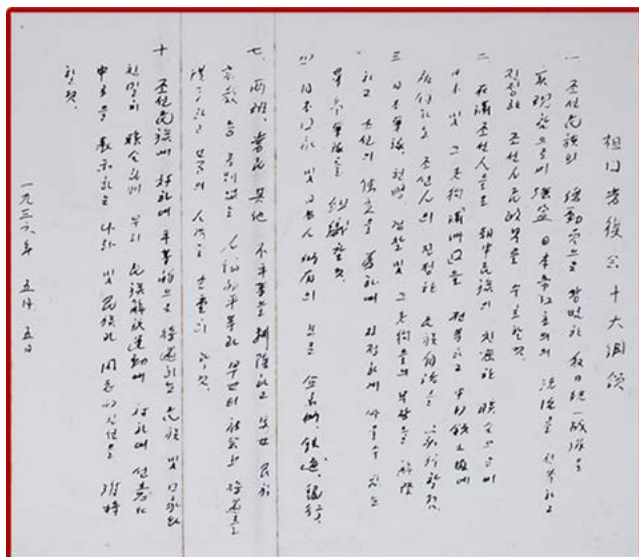 祖国光復会十大綱領
一、조선民族의 総動員으로 광범한 反日統一戦線을
実現함으로써 強盗 日本帝国主義의 統治를 전복하고
진정한 조선人民政府를 수립할것.
二、在満朝鮮人들은 朝中民族의 친밀한 聯合으로써
日本 및 그 走狗 満洲国을 전복하고 中国領土내에
居住하는 조선人의 진정한 民族自治를 実行할것.
三 日本軍隊、헌병 경찰 및 그 走狗들의 무장을 解除
하고 조선의 独立을 위하여 진정하게 싸울수 있는
革命軍隊를 組織할것.
四 日本国家 및 日本人 所有의 모든 企業所、鉄道、銀行、
七、両班、常民 其他 不平等을 排除하고 男女 民族
宗教 等 差別없는 人倫的平等과 부녀의 社会上 待遇를
提高하고 女子의 人格을 존중히 할것.
十 조선民族에 対하여 平等的으로 待遇하는 民族 및 国家와
친밀히 聯合하며 우리 民族解放運動에 対하여 선의로
中立을 表示하는 나라 및 民族과 同志的親善을 維持
할것.
一九三六年 五月 五日